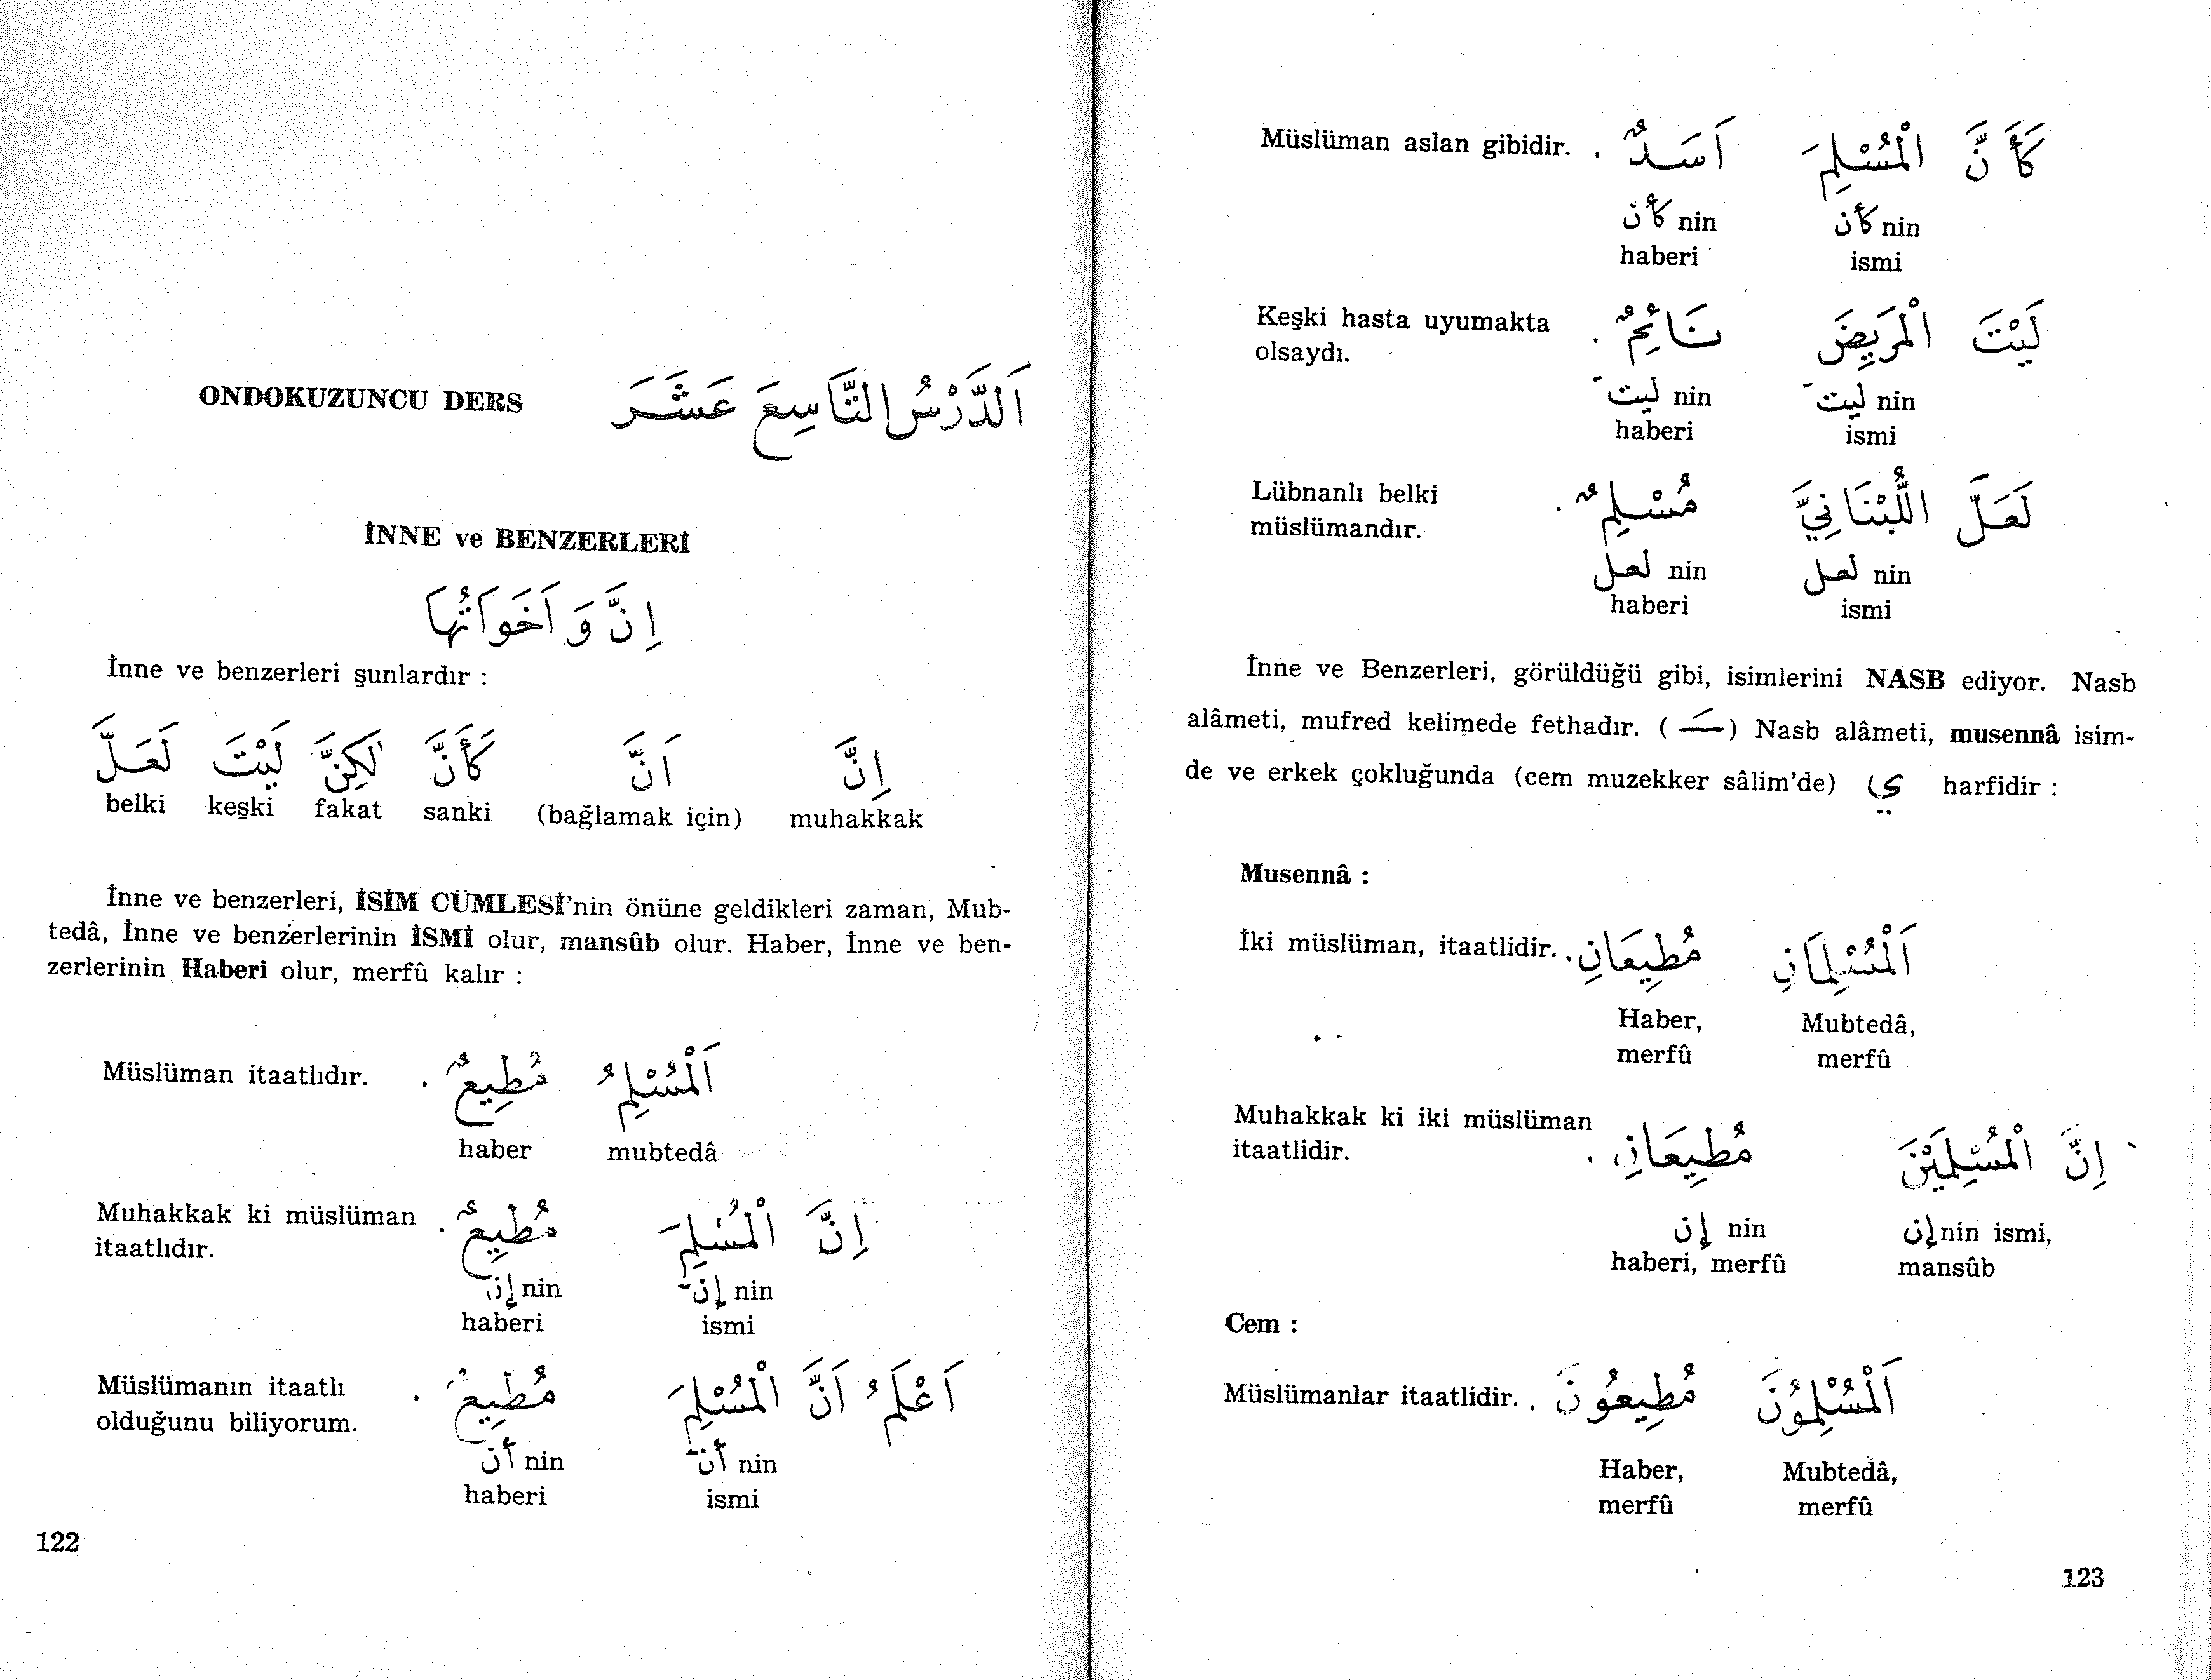 ONDOKUZUNCU DERS اَلدَّرْسُ التَّاسِعَ عَشَرَ
İNNE ve BENZERLERİ
اِنَّ وَ اَخَوَاتُهَا
İnne ve benzerleri şunlardır :
اِنَّ اَنَّ كَأَنَّ لٰكِنَّ لَيْتَ لَعَلَّ
belki keşki fakat sanki (bağlamak için) muhakkak
İnne ve benzerleri, İSİM CÜMLESİ'nin önüne geldikleri zaman, Mub-
tedâ, İnne ve benzerlerinin İSMİ olur, mansûb olur. Haber, İnne ve ben-
zerlerinin Haberi olur, merfû kalır :
Müslüman itaatlıdır. اَلْمُسْلِمُ مُطِيعٌ .
haber mubtedâ
Muhakkak ki müslüman اِنَّ الْمُسْلِمَ مُطِيعٌ .
itaatlıdır.
إن nin إن nin
haberi ismi
Müslümanın itaatlı اَعْلَمُ اَنَّ الْمُسْلِمَ مُطِيعٌ .
olduğunu biliyorum.
أن nin أن nin
haberi ismi
122
Müslüman aslan gibidir. كَأَنَّ الْمُسْلِمَ اَسَدٌ .
كأن nin كأن nin
haberi ismi
Keşki hasta uyumakta لَيْتَ الْمَرِيضَ نَائِمٌ .
olsaydı.
ليت nin ليت nin
haberi ismi
Lübnanlı belki لَعَلَّ اللُّبْنَانِيَّ مُسْلِمٌ .
müslümandır.
لعل nin لعل nin
haberi ismi
İnne ve Benzerleri, görüldüğü gibi, isimlerini NASB ediyor. Nasb
alâmeti, mufred kelimede fethadır. ( ـَ ) Nasb alâmeti, musennâ isim-
de ve erkek çokluğunda (cem muzekker sâlim'de) ي harfidir :
Musennâ :
İki müslüman, itaatlidir. اَلْمُسْلِمَانِ مُطِيعَانِ .
Haber, Mubtedâ,
merfû merfû
Muhakkak ki iki müslüman اِنَّ الْمُسْلِمَيْنَ مُطِيعَانِ .
itaatlidir.
إن nin إن nin ismi,
haberi, merfû mansûb
Cem :
Müslümanlar itaatlidir. اَلْمُسْلِمُونَ مُطِيعُونَ .
Haber, Mubtedâ,
merfû merfû
123